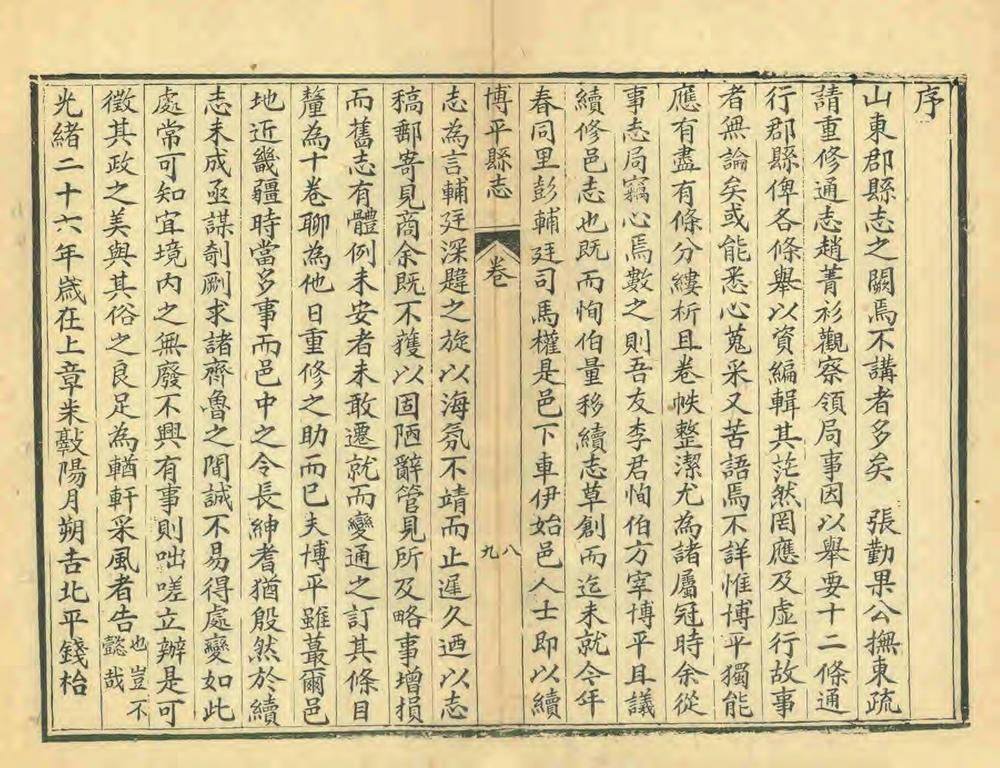 序
山東郡縣志之闕焉不講者多矣　張勤果公撫東疏
請重修通志趙菁衫觀察領局事因以舉要十二條通
行郡縣俾各條舉以資編輯其茫然罔應及虛行故事
者無論矣或能悉心蒐采又苦語焉不詳惟博平獨能
應有盡有條分縷析且卷帙整潔尤為諸屬冠時余從
事志局竊心焉數之則吾友李君恂伯方宰博平且議
續修邑志也既而恂伯量移續志草創而迄未就今年
春同里彭輔廷司馬權是邑下車伊始邑人士即以續
博平縣志　卷　八　九
志為言輔廷深韙之旋以海氛不靖而止遲久迺以志
稿郵寄見商余既不獲以固陋辭管見所及略事增損
而舊志有體例未安者未敢遷就而變通之訂其條目
釐為十卷聊為他日重修之助而已夫博平雖蕞爾邑
地近畿疆時當多事而邑中之令長紳耆猶殷然於續
志未成亟謀剞劂求諸齊魯之間誠不易得處變如此
處常可知宜境內之無廢不興有事則咄嗟立辦是可
徵其政之美與其俗之良足為輶軒采風者告也豈不懿哉
光緒二十六年歲在上章困敦陽月朔吉北平錢枱